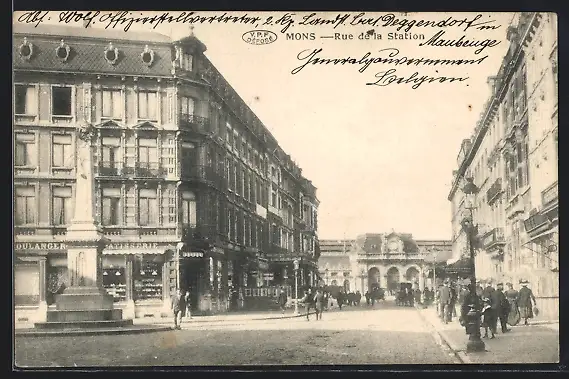 Abs. Wolf, Offizierstellvertreter, 2. Kp. Landst. Bat. Deggendorf in
V.P.F DÉPOSÉ
MONS — Rue de la Station
Maubeuge
Generalgouvernement
Belgien
BOULANGERIE PATISSERIE